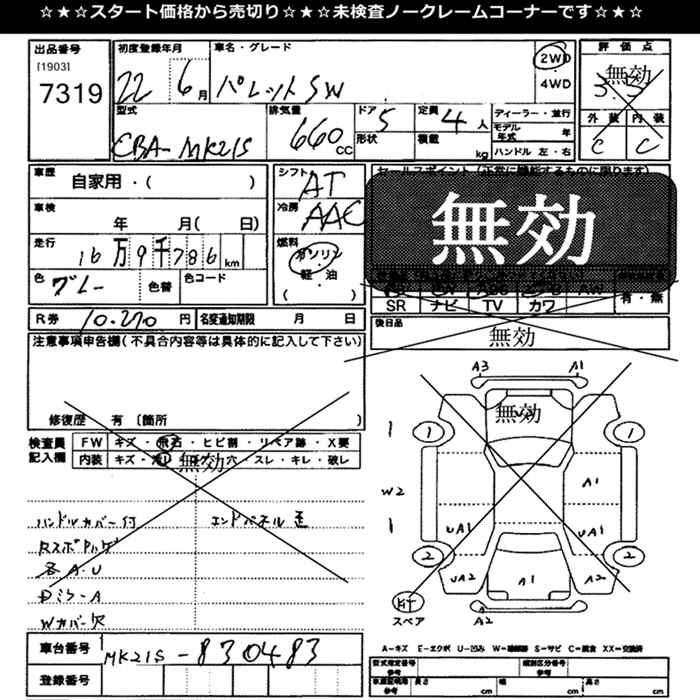 ☆★☆★スタート価格から売切り☆★☆★未検査ノークレームコーナーです☆★☆
出品番号 初度登録年月 車名・グレード 評価点
[1903]
7319 22 6月 パレットSW 2WD 4WD 無効
型式 排気量 ドア 定員 ディーラー・並行 外装 内装
CBA-MK21S 660CC 5 形状 4人 積載 kg モデル年式 年 C C
ハンドル 左・右
車歴 自家用・( ) シフト AT セールスポイント(正常に機能するものに限ります)
車検 年 月( 日) 冷房 AAC 無効
走行 16万9千786km 燃料 ガソリン
色 グレー 色替 色コード 軽・油
( )
SR ナビ TV カワ 有・無
R券 10.270円 名変通知期限 月 日 後日品 無効
注意事項申告欄(不具合内容等は具体的に記入して下さい)
修復歴 有〔箇所
検査員記入欄 FW キズ・飛石・ヒビ割・リペア跡・X要
内装 キズ・汚レ 無効 穴・スレ・キレ・破レ
ハンドルカバー付 エンドパネル歪
各A.U
Wカバー欠
A3 A1
無効
1 1 1
W2 A1
1 UA1 UA1
2 2
UA2 A1 A2
スペア A2
A=キズ E=エクボ U=凹み W=補修跡 S=サビ C=腐食 XX=交換済
車台番号 MK21S-830483
登録番号
型式指定番号 参考 類別区分番号 参考
車庫証明用 参考 長さ cm 幅 cm 高さ cm